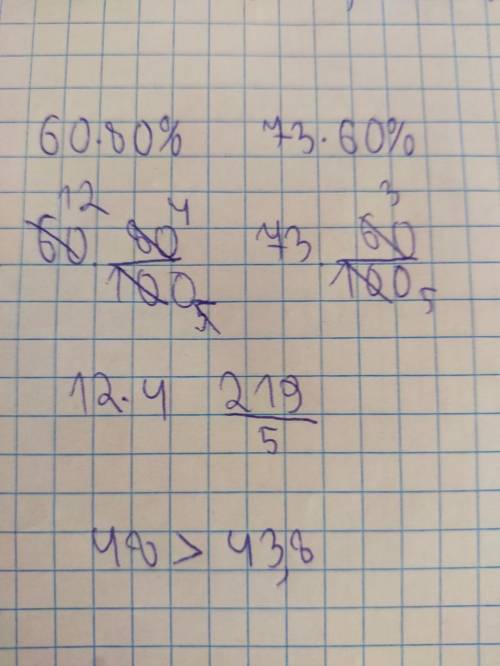 60·80%   73·60%
12   4   3
60 · 80/100 5   73 · 60/100 5
12·4   219/5
48 > 43,8